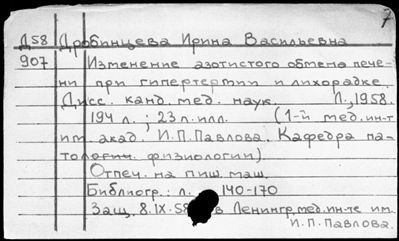 7
Д58 Дробинцева Ирина Васильевна
907 Изменение азотистого обмена пече-
ни при гипертермии и лихорадке.
Дисс. канд. мед. наук. Л., 1958.
194 л.; 23 л. илл. (1-й мед. ин-т
им. акад. И.П. Павлова. Кафедра па-
тологич. физиологии).
Отпеч. на пиш. маш.
Библиогр.: л. 140-170
Защ. 8.IX.58 в Ленингр. мед. ин-те им.
И.П. Павлова.